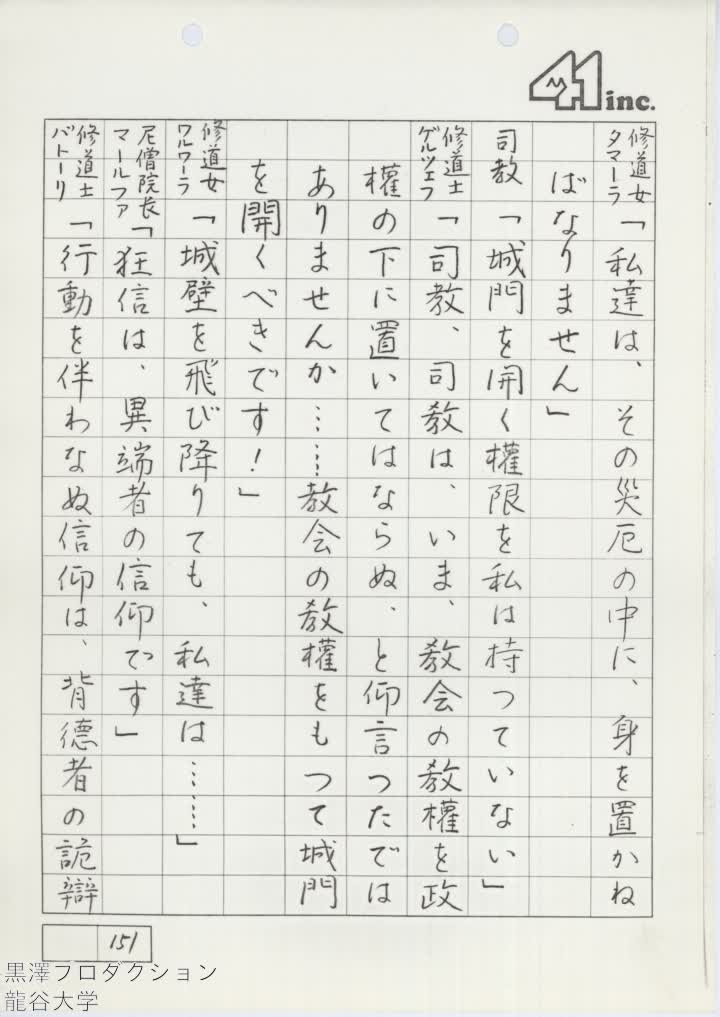 41 inc.
修道女タマーラ「私達は、その災厄の中に、身を置かね
ばなりません」
司教「城門を開く權限を私は持つていない」
修道士ゲルツェフ「司教、司教は、いま、教会の教權を政
權の下に置いてはならぬ、と仰言つたでは
ありませんか……教会の教權をもつて城門
を開くべきです！」
修道女ワルワーラ「城壁を飛び降りても、私達は……」
尼僧院長マールファ「狂信は、異端者の信仰です」
修道士バトーリ「行動を伴わなぬ信仰は、背德者の詭辯
151
黒澤プロダクション
龍谷大学